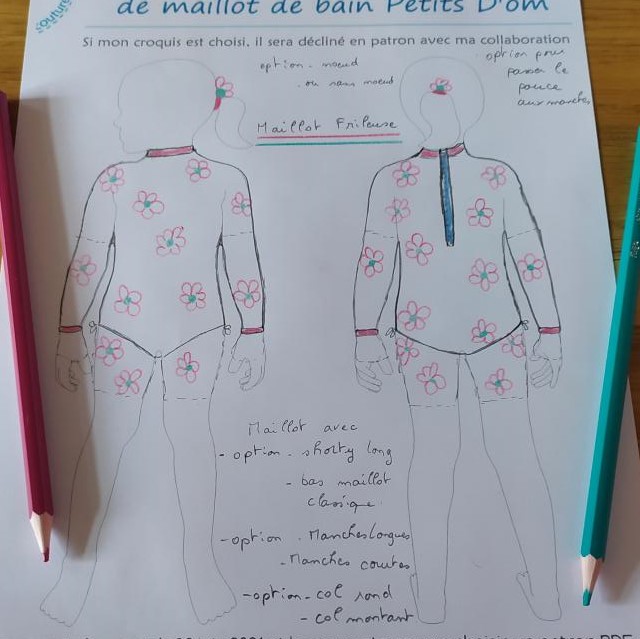 couture
de maillot de bain Petits D'om
Si mon croquis est choisi, il sera décliné en patron avec ma collaboration
option. noeud
. ou sans noeud
option pour
passer le
pouce
aux manches
Maillot Frileuse
Maillot avec
- option. shorty long
- bas maillot
classique.
- option. Manches longues
- Manches courtes
- option - col rond
- col montant